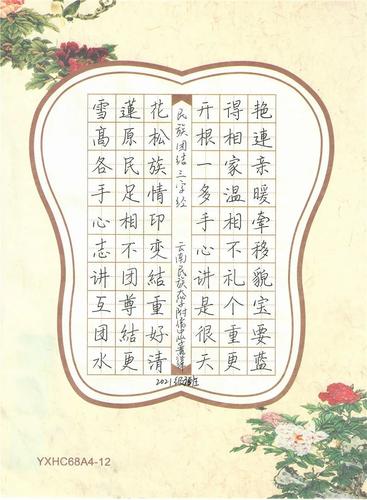 民族团结三字经
雪蓮花开得艳
高原松根相連
各民族一家亲
手足情多温暖
心相印手相牽
志不变心不移
讲团結讲礼貌
互尊重是个宝
团結好很重要
水更清天更蓝
云南民族大学附属中学
2021级
YXHC68A4-12